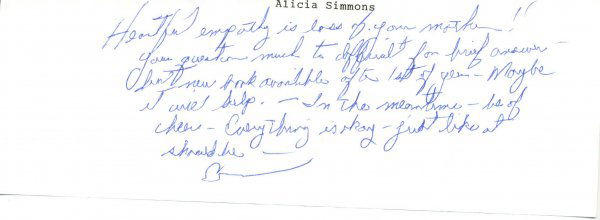 Alicia Simmons
Heartful empathy is loss of your mother!!
Your question much to difficult for brief answer -
but new book available after 1st of year - Maybe
it will help. - In the meantime - be of
cheer - Everything is okay - just like it
should be -